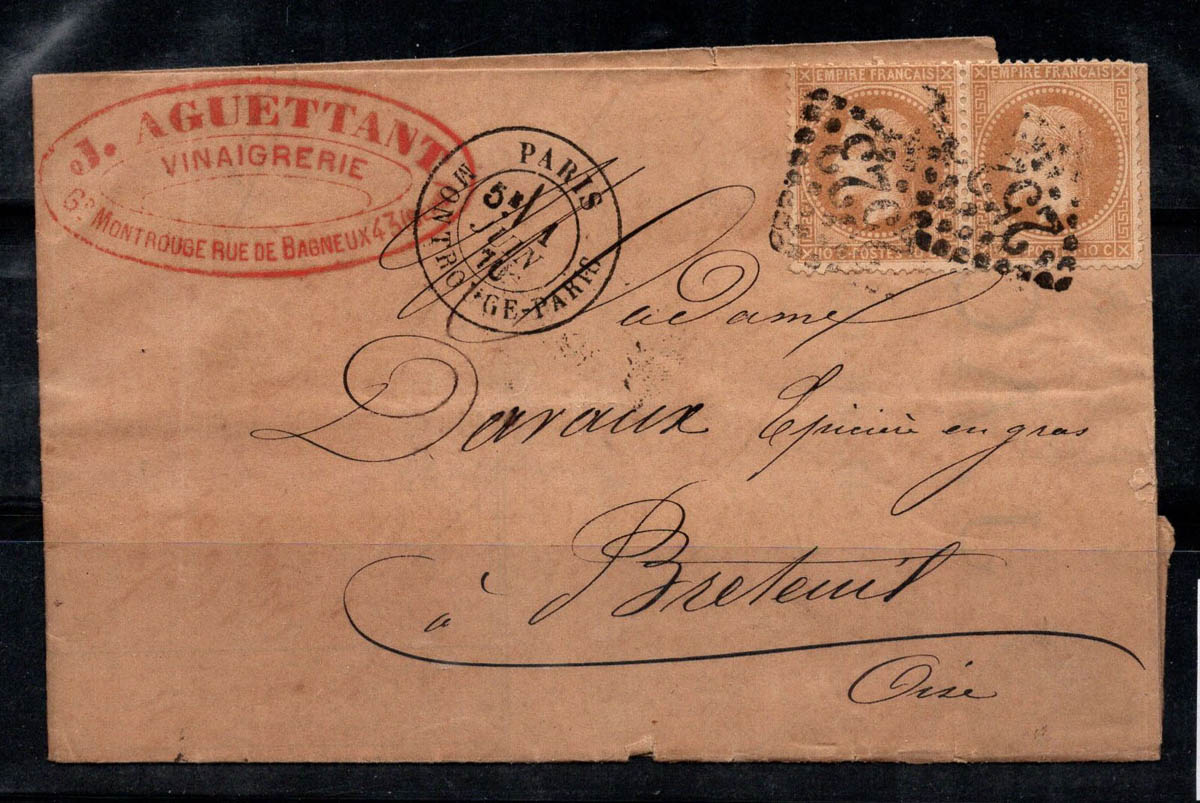 J. AGUETTANT
VINAIGRERIE
Gd MONTROUGE RUE DE BAGNEUX 43
PARIS
5E 1
JUIN
70
MONTROUGE-PARIS
EMPIRE FRANÇAIS
10 C POSTES 10 C
EMPIRE FRANÇAIS
POSTES 10 C
2523
2523
Madame
Davaux Epicière en gros
à Breteuil
Oise